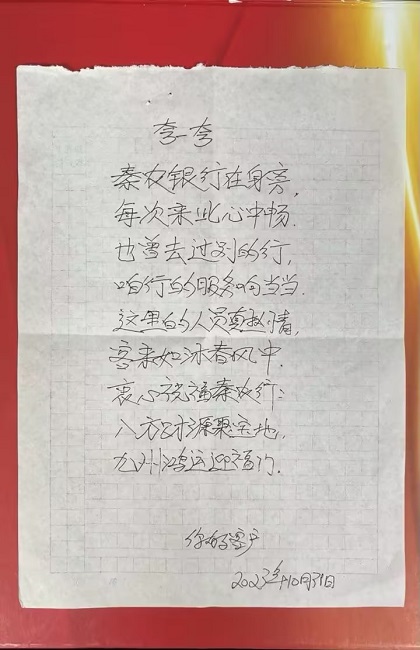 夸一夸
秦农银行在身旁,
每次来此心中畅.
也曾去过别的行,
咱行的服务响当当.
这里的人员真热情,
客来如沐春风中.
衷心祝福秦农行:
八方财源聚宝地,
九州鸿运迎福门.
你的客户
2023年10月31日